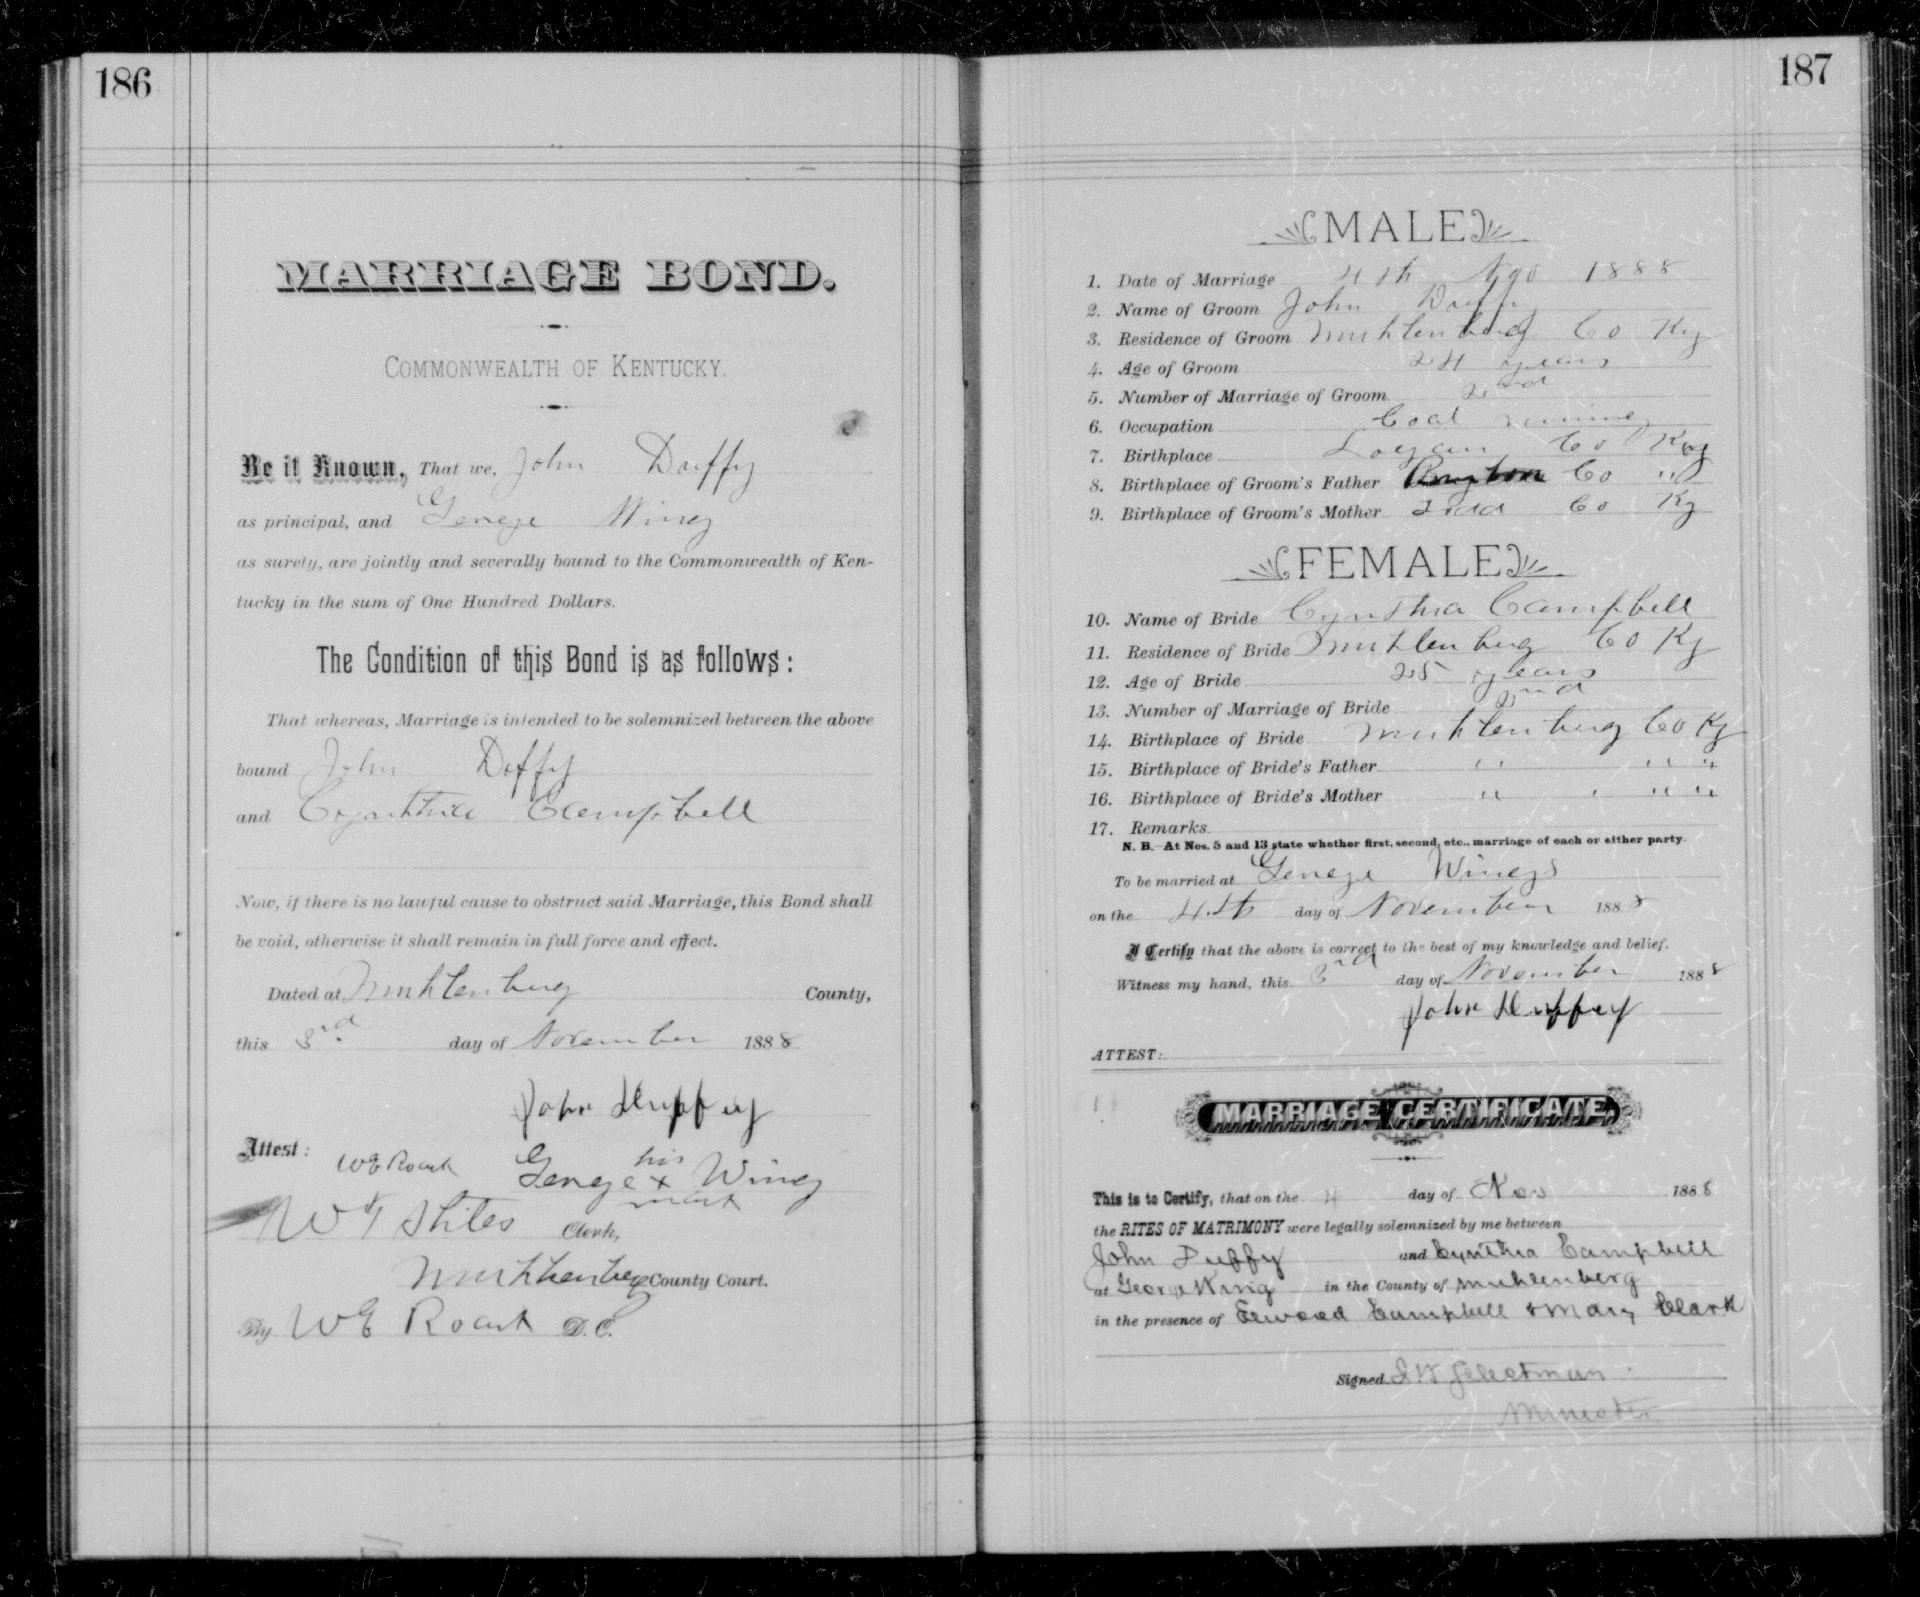 186
MARRIAGE BOND.
COMMONWEALTH OF KENTUCKY.
Be it Known, That we, John Duffy
as principal, and George Wing
as surety, are jointly and severally bound to the Commonwealth of Ken-
tucky in the sum of One Hundred Dollars.
The Condition of this Bond is as follows:
That whereas, Marriage is intended to be solemnized between the above
bound John Duffy
and Cynthia Campbell
Now, if there is no lawful cause to obstruct said Marriage, this Bond shall
be void, otherwise it shall remain in full force and effect.
Dated at Muhlenberg County,
this 3rd day of November 1888
John Duffey
Attest: W E Roark George his x mark Wing
W T Stiles Clerk,
Muhlenberg County Court.
By W E Roark D.C.
187
MALE
1. Date of Marriage 4th Nov 1888
2. Name of Groom John Duffy
3. Residence of Groom Muhlenberg Co Ky
4. Age of Groom 24 years
5. Number of Marriage of Groom 2nd
6. Occupation Coal mining
7. Birthplace Logan Co Ky
8. Birthplace of Groom's Father Co "
9. Birthplace of Groom's Mother Todd Co Ky
FEMALE
10. Name of Bride Cynthia Campbell
11. Residence of Bride Muhlenberg Co Ky
12. Age of Bride 25 years
13. Number of Marriage of Bride 2nd
14. Birthplace of Bride Muhlenberg Co Ky
15. Birthplace of Bride's Father " " "
16. Birthplace of Bride's Mother " " "
17. Remarks
N. B.—At Nos. 5 and 13 state whether first, second, etc., marriage of each or either party.
To be married at George Wings
on the 4th day of November 1888
I Certify that the above is correct to the best of my knowledge and belief.
Witness my hand, this 3rd day of November 1888
John Duffey
ATTEST:
MARRIAGE CERTIFICATE.
This is to Certify, that on the 4 day of Nov 1888
the RITES OF MATRIMONY were legally solemnized by me between
John Duffy and Cynthia Campbell
at George Wing in the County of Muhlenberg
in the presence of Elwood Campbell & Mary Clark
Signed J W Gelectman
Minister